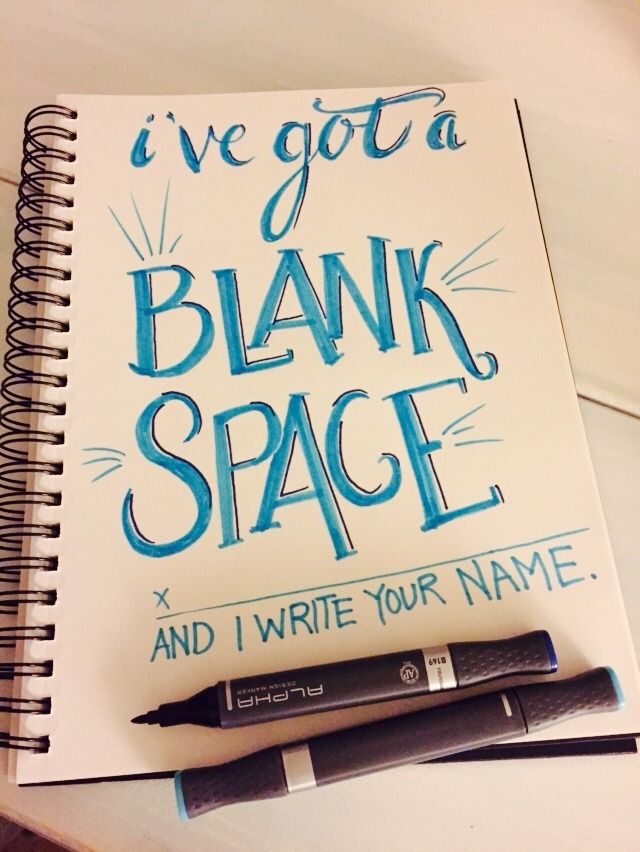 i've got a
BLANK
SPACE
x
AND I WRITE YOUR NAME.
B169
ALPHA
DESIGN MARKER